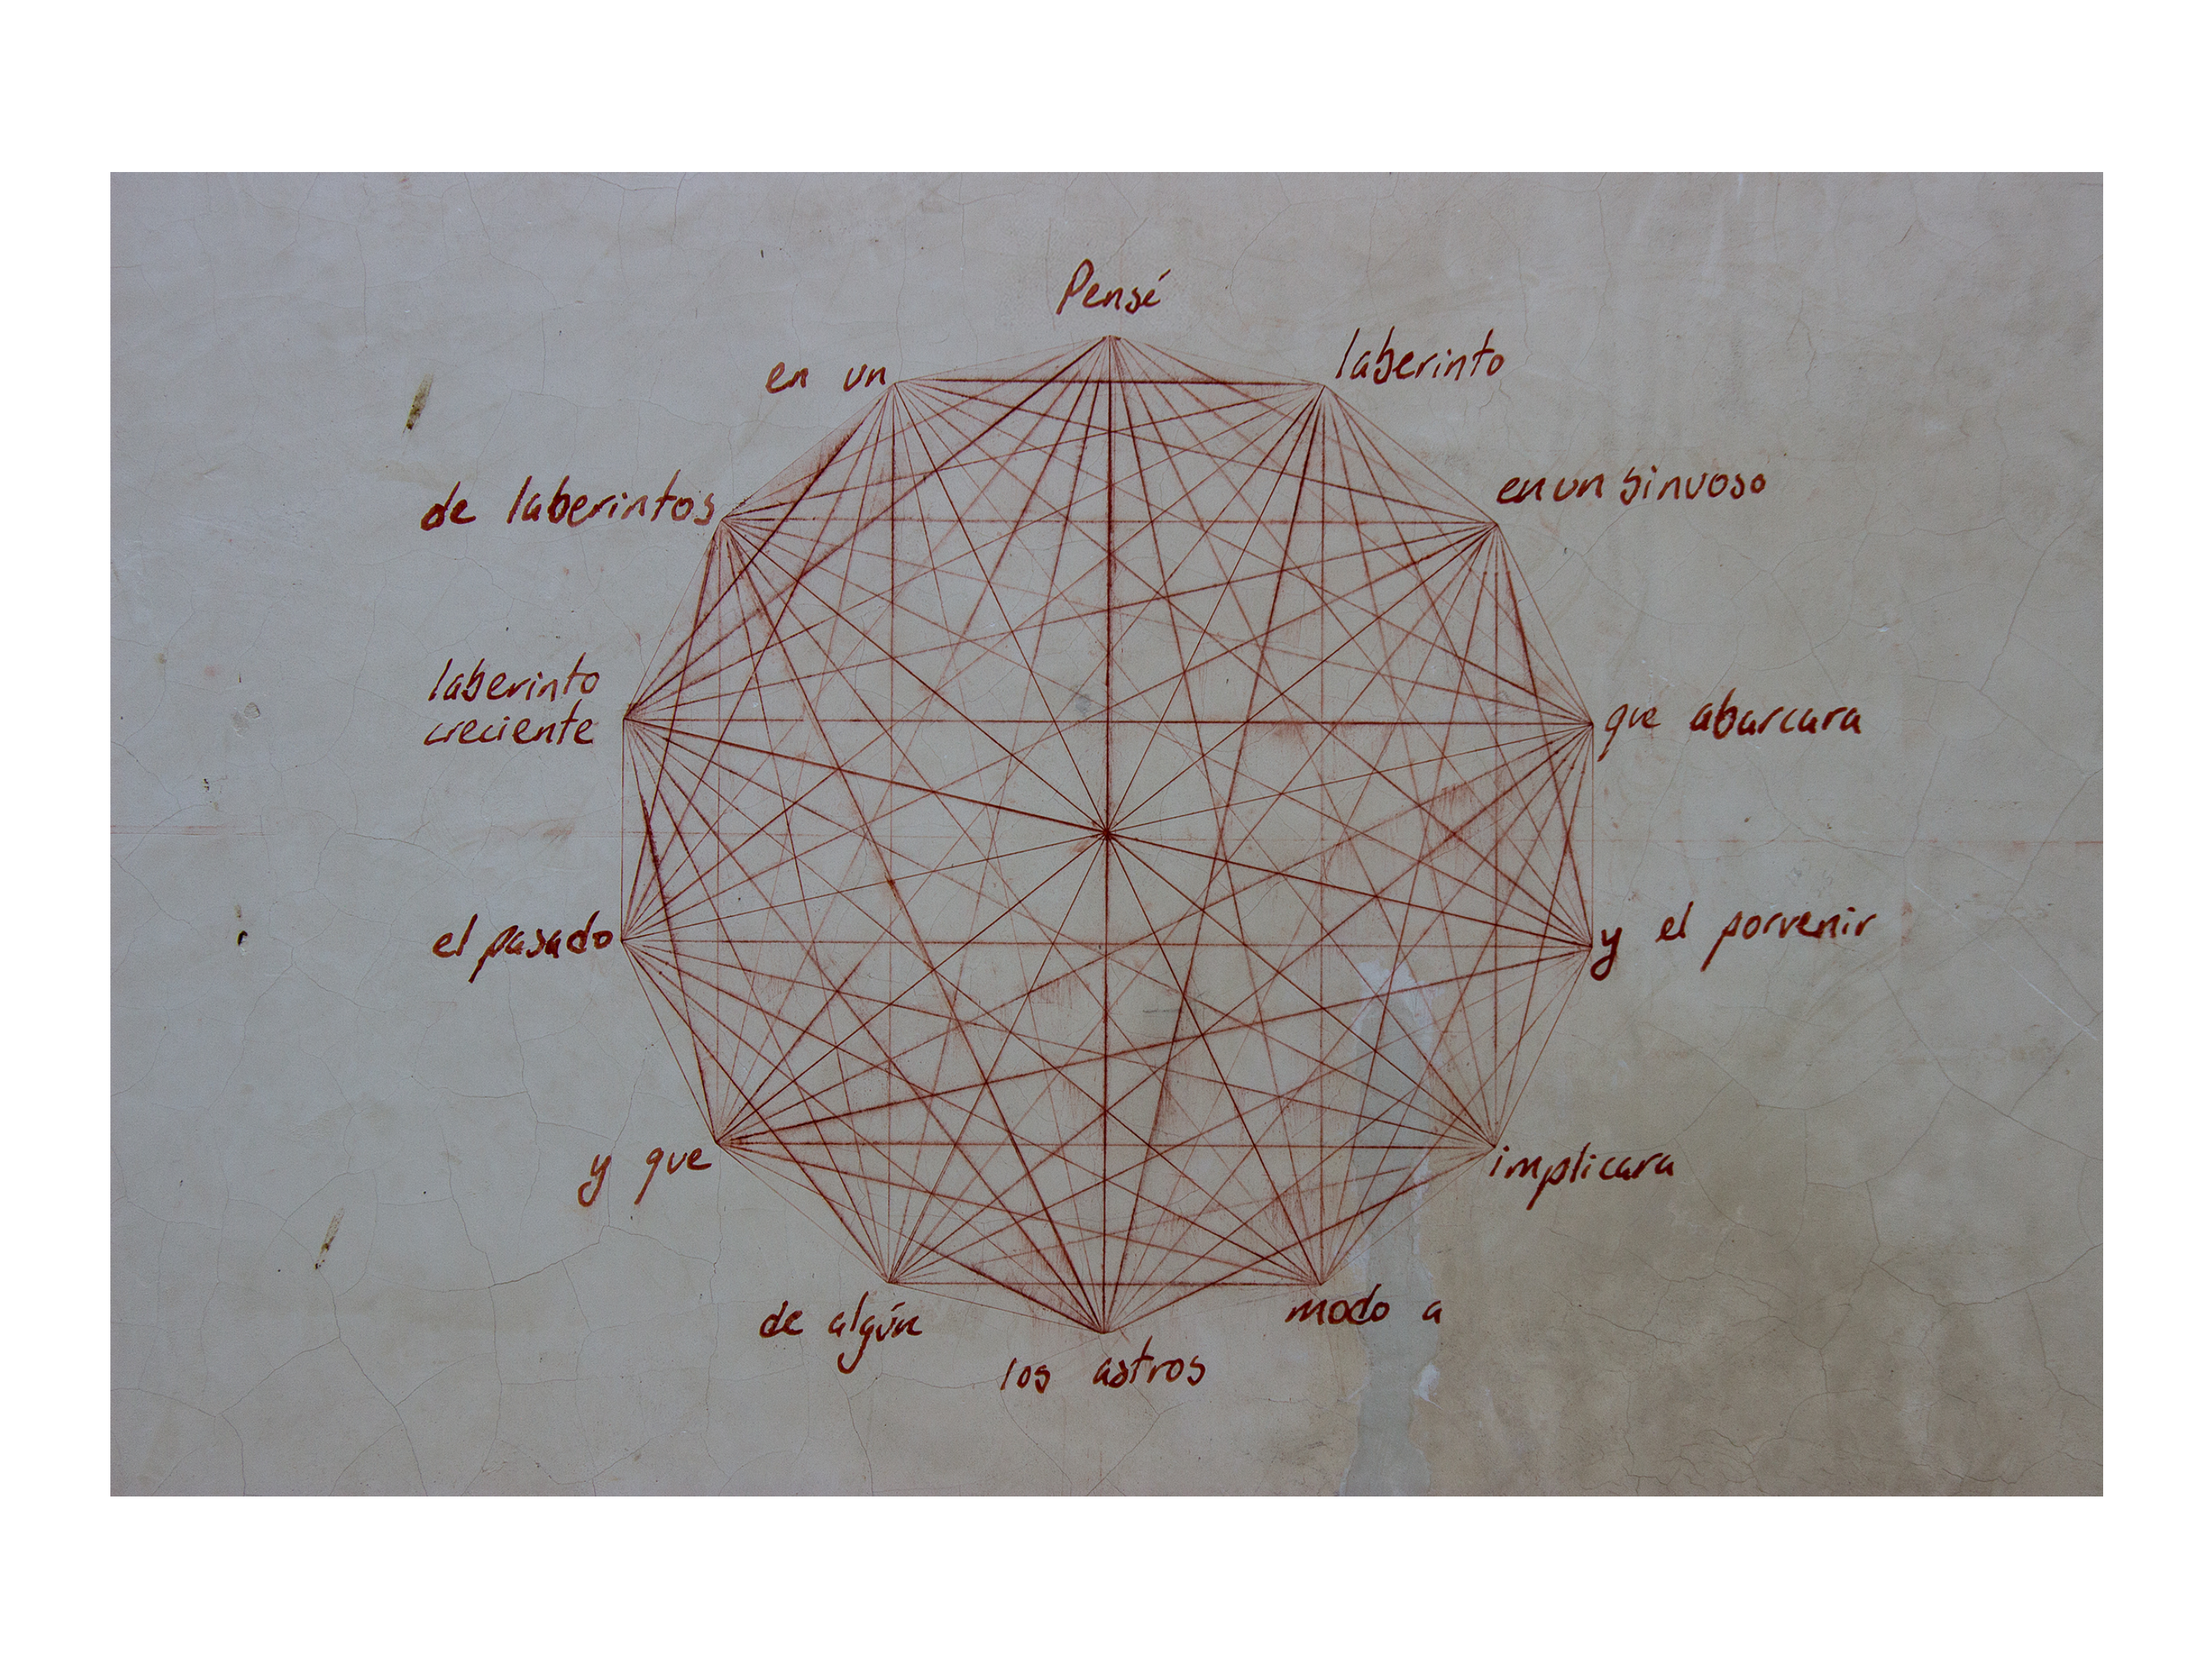 Pensé
en un
laberinto
de laberintos
en un sinuoso
laberinto
creciente
que abarcara
el pasado
y el porvenir
y que
implicara
de algún
modo a
los astros